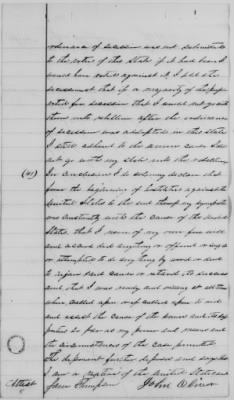 ordinance of secession was not submitted
to the voters of this State if it had been I
would have voted against it. I told the
secessionist that if a majority of the people
voted for secession that I would not go with
them into rebellion after the ordinance
of secession was adopted in this state
I still adhered to the union cause I did
not go with my State into the rebellion
(41) In conclusion I do solemnly declare that
from the beginning of hostilities against the
United States to the end thereof my sympathies
were constantly with the cause of the United
States, that I never of my own free will
and accord did anything or offered or sought
or attempted to do anything by word or deed
to injure said cause or retard its success
and that I was ready and willing at all times
when called upon or if called upon to aid
and assist the cause of the Union and its sup-
porters so far as my power and means and
the circumstances of the case permitted
The deponent further deposes and says that
I am a native of the United States and
Attest
James Thompson John Oliver